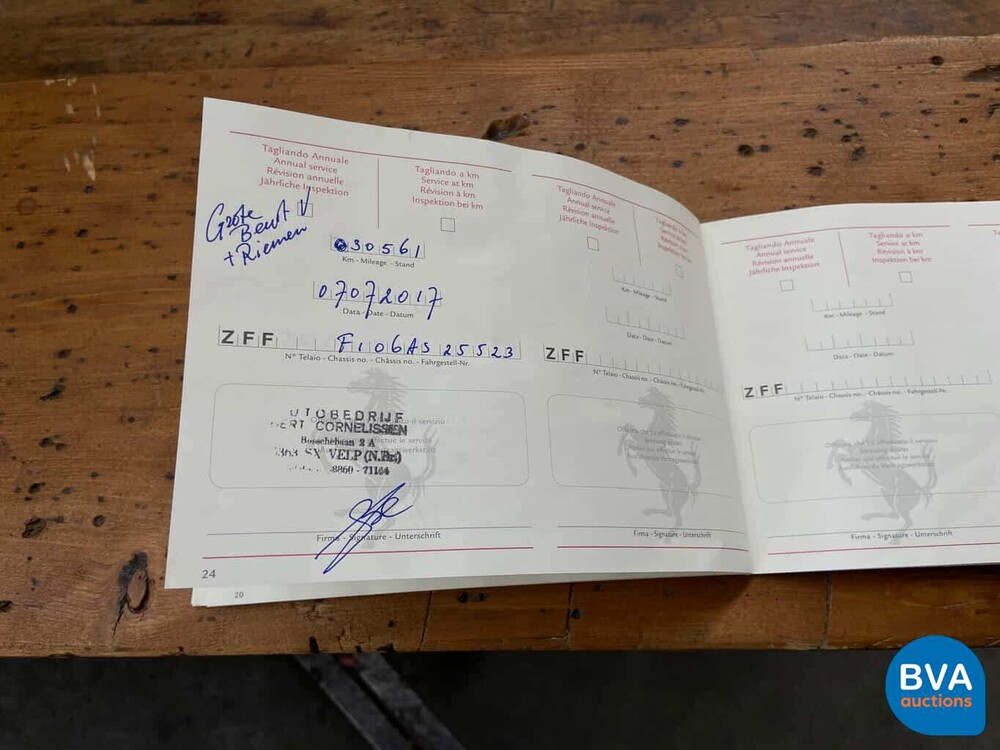 Tagliando Annuale
Annual service
Révision annuelle
Jährliche Inspektion
Tagliando a km
Service at km
Révision à km
Inspektion bei km
Grote
Beurt
+ Riemen
030561
Km - Mileage - Stand
07072017
Data - Date - Datum
ZFF F106AS25523
N° Telaio - Chassis no. - Châssis no. - Fahrgestell-Nr.
UTOBEDRIJF
ERT CORNELISSEN
Bosschebaan 2 A
5363 SX VELP (N.Br.)
8860 - 71164
Firma - Signature - Unterschrift
24
20
Tagliando Annuale
Annual service
Révision annuelle
Jährliche Inspektion
Tagliando a km
Service at km
Révision à km
Inspektion bei km
Km - Mileage - Stand
Data - Date - Datum
ZFF
N° Telaio - Chassis no. - Châssis no. - Fahrgestell-Nr.
Firma - Signature - Unterschrift
Tagliando Annuale
Annual service
Révision annuelle
Jährliche Inspektion
Tagliando a km
Service at km
Révision à km
Inspektion bei km
Km - Mileage - Stand
Data - Date - Datum
ZFF
N° Telaio - Chassis no. - Châssis no. - Fahrgestell-Nr.
Firma - Signature - Unterschrift
BVA
auctions